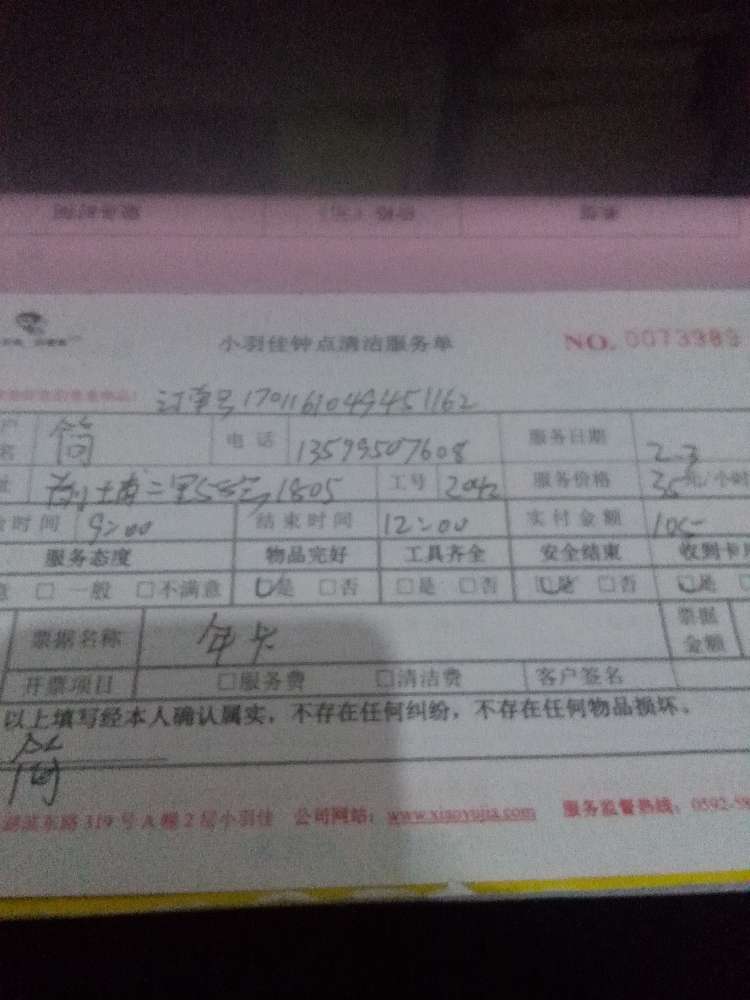 小羽佳钟点清洁服务单 NO. 0073989
订单号1701161049451162
户名 简 电话 13599507608 服务日期 2-3
址 二里58号1805 工号 2042 服务价格 35元/小时
时间 9:00 结束时间 12:00 实付金额 105-
服务态度 物品完好 工具齐全 安全结束 收到卡
意 □ 一般 □不满意 □是 □否 □是 □否 □是 □否 □是
票据名称 年卡 票据金额
开票项目 □服务费 □清洁费 客户签名
以上填写经本人确认属实，不存在任何纠纷，不存在任何物品损坏。
简
滨东路319号A幢2层小羽佳 公司网站：www.xiaoyujia.com 服务监督热线：0592-58